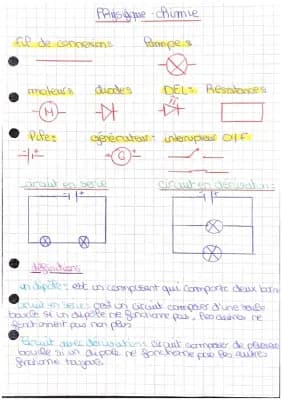 Physique-chimie
fil de connexion: lampes
moteurs diodes DEL: Résistances
M
Pile: générateur: interrupteur O/F
G
circuit en série circuit en dérivation:
définitions
un dipôle: est un composant qui comporte deux bornes
circuit en série: c'est un circuit composer d'une seule
boucle si un dipôle ne fonctionne pas, les autres ne
fonctionnent pas non plus
circuit avec dérivations: circuit composer de plusieurs
boucle si un dipôle ne fonctionne pas les autres
fonctionne toujours.